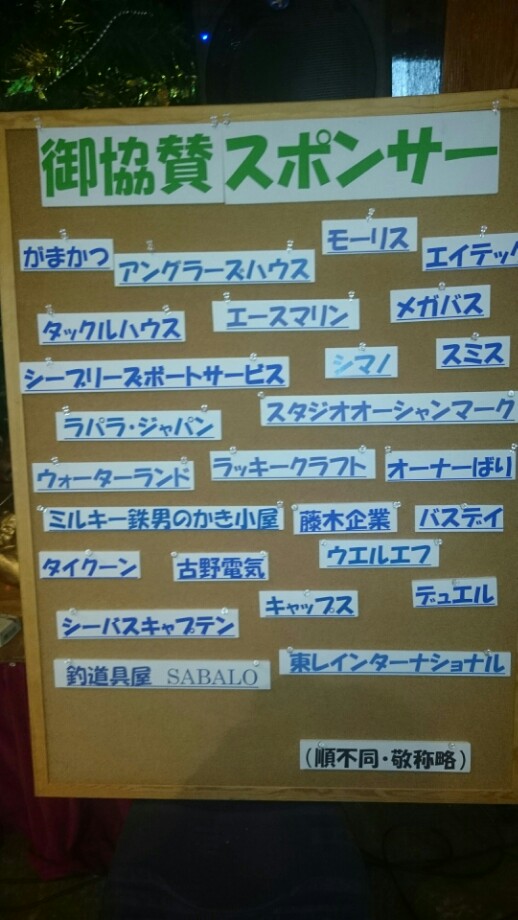 御協賛スポンサー
がまかつ
アングラーズハウス
モーリス
エイテック
タックルハウス
エースマリン
メガバス
シーブリーズボートサービス
シマノ
スミス
ラパラ・ジャパン
スタジオオーシャンマーク
ウォーターランド
ラッキークラフト
オーナーばり
ミルキー鉄男のかき小屋
藤木企業
バスデイ
タイクーン
古野電気
ウエルエフ
キャップス
デュエル
シーバスキャプテン
釣道具屋 SABALO
東レインターナショナル
(順不同・敬称略)